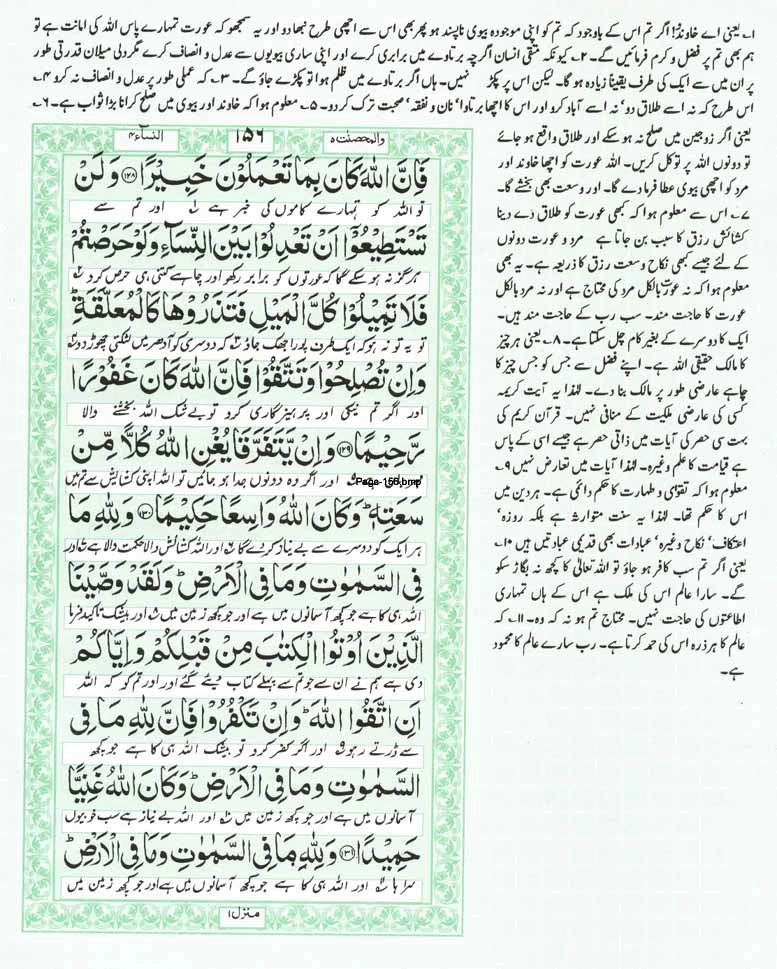 ۱۔ یعنی اے خاوندو! اگر تم اس کے باوجود کہ تم کو اپنی موجودہ بیوی ناپسند ہو پھر بھی اس سے اچھی طرح نبھا دو اور یہ سمجھو کہ عورت تمہارے پاس اللہ کی امانت ہے تو
ہم بھی تم پر فضل و کرم فرمائیں گے۔ ۲۔ کیونکہ متقی انسان اگرچہ برتاوے میں برابری کرے اور اپنی ساری بیویوں سے عدل و انصاف کرے مگر دلی میلان قدرتی طور
پر ان میں سے ایک کی طرف یقیناً زیادہ ہو گا۔ لیکن اس پر پکڑ نہیں۔ ہاں اگر برتاوے میں ظلم ہوا تو پکڑے جاؤ گے۔ ۳۔ کہ عملی طور پر عدل و انصاف نہ کرو ۴۔
اس طرح کہ نہ اسے طلاق دو' نہ اسے آباد کرو اور اس کا اچھا برتاوا' نان و نفقہ' صحبت ترک کر دو۔ ۵۔ معلوم ہوا کہ خاوند اور بیوی میں صلح کرانا بڑا ثواب ہے۔ ۶۔
یعنی اگر زوجین میں صلح نہ ہو سکے اور طلاق واقع ہو جائے
تو دونوں اللہ پر توکل کریں۔ اللہ عورت کو اچھا خاوند اور
مرد کو اچھی بیوی عطا فرما دے گا۔ اور وسعت بھی بخشے گا۔
۷۔ اس سے معلوم ہوا کہ کبھی عورت کو طلاق دے دینا
کشائش رزق کا سبب بن جاتا ہے مرد و عورت دونوں
کے لئے جیسے کبھی نکاح وسعت رزق کا ذریعہ ہے۔ یہ بھی
معلوم ہوا کہ نہ عورت بالکل مرد کی محتاج ہے اور نہ مرد بالکل
عورت کا حاجت مند۔ سب رب کے حاجت مند ہیں۔
ایک کا دوسرے کے بغیر کام چل سکتا ہے۔ ۸۔ یعنی ہر چیز
کا مالک حقیقی اللہ ہے۔ اپنے فضل سے جس کو جس چیز کا
چاہے عارضی طور پر مالک بنا دے۔ لہٰذا یہ آیت کریمہ
کسی کی عارضی ملکیت کے منافی نہیں۔ قرآن کریم کی
بہت سی حصر کی آیات میں ذاتی حصر ہے جیسے اسی کے پاس
ہے قیامت کا علم وغیرہ۔ لہٰذا آیات میں تعارض نہیں ۹۔
معلوم ہوا کہ تقویٰ و طہارت کا حکم دائمی ہے۔ ہر دین میں
اس کا حکم تھا۔ لہٰذا یہ سنت متوارثہ ہے بلکہ روزہ'
اعتکاف' نکاح وغیرہ' عبادات بھی قدیمی عبادتیں ہیں ۱۰۔
یعنی اگر تم سب کافر ہو جاؤ تو اللہ تعالیٰ کا کچھ نہ بگاڑ سکو
گے۔ سارا عالم اس کی ملک ہے اس کے ہاں تمہاری
اطاعتوں کی حاجت نہیں۔ محتاج تم ہو نہ کہ وہ۔ ۱۱۔ کہ
عالم کا ہر ذرہ اس کی حمد کرتا ہے۔ رب سارے عالم کا محمود
ہے۔
والمحصنت ۵ ۱۵۶ النساء ۴
فَاِنَّ اللّٰهَ كَانَ بِمَا تَعْمَلُوْنَ خَبِيْرًا ﴿۱۲۸﴾ وَلَنْ
تو اللہ کو تمہارے کاموں کی خبر ہے اور تم سے
تَسْتَطِيْعُوْۤا اَنْ تَعْدِلُوْا بَيْنَ النِّسَآءِ وَلَوْ حَرَصْتُمْ
ہرگز نہ ہو سکے گا کہ عورتوں کو برابر رکھو اور چاہے کتنی ہی حرص کرو
فَلَا تَمِيْلُوْا كُلَّ الْمَيْلِ فَتَذَرُوْهَا كَالْمُعَلَّقَةِ ؕ
تو یہ تو نہ ہو کہ ایک طرف پورا جھک جاؤ کہ دوسری کو ادھر میں لٹکتی چھوڑ دو
وَاِنْ تُصْلِحُوْا وَتَتَّقُوْا فَاِنَّ اللّٰهَ كَانَ غَفُوْرًا
اور اگر تم نیکی اور پرہیزگاری کرو تو بے شک اللہ بخشنے والا
رَّحِيْمًا ﴿۱۲۹﴾ وَاِنْ يَّتَفَرَّقَا يُغْنِ اللّٰهُ كُلًّا مِّنْ
اور اگر وہ دونوں جدا ہو جائیں تو اللہ اپنی کشائش سے تم میں
Page-156.bmp
سَعَتِهٖ ؕ وَكَانَ اللّٰهُ وَاسِعًا حَكِيْمًا ﴿۱۳۰﴾ وَلِلّٰهِ مَا
ہر ایک کو دوسرے سے بے نیاز کر دے گا اور اللہ کشائش والا حکمت والا ہے اور
فِي السَّمٰوٰتِ وَمَا فِي الْاَرْضِ ؕ وَلَقَدْ وَصَّيْنَا
اللہ ہی کا ہے جو کچھ آسمانوں میں ہے اور جو کچھ زمین میں اور بیشک تاکید فرما
الَّذِيْنَ اُوْتُوا الْكِتٰبَ مِنْ قَبْلِكُمْ وَاِيَّاكُمْ
دی ہے ہم نے ان سے جو تم سے پہلے کتاب دیئے گئے اور تم کو کہ اللہ
اَنِ اتَّقُوا اللّٰهَ ؕ وَاِنْ تَكْفُرُوْا فَاِنَّ لِلّٰهِ مَا فِي
سے ڈرتے رہو اور اگر کفر کرو تو بیشک اللہ ہی کا ہے جو کچھ
السَّمٰوٰتِ وَمَا فِي الْاَرْضِ ؕ وَكَانَ اللّٰهُ غَنِيًّا
آسمانوں میں ہے اور جو کچھ زمین میں اور اللہ بے نیاز ہے سب خوبیوں
حَمِيْدًا ﴿۱۳۱﴾ وَلِلّٰهِ مَا فِي السَّمٰوٰتِ وَمَا فِي الْاَرْضِ ؕ
سراہا اور اللہ ہی کا ہے جو کچھ آسمانوں میں ہے اور جو کچھ زمین میں
منزل ۱